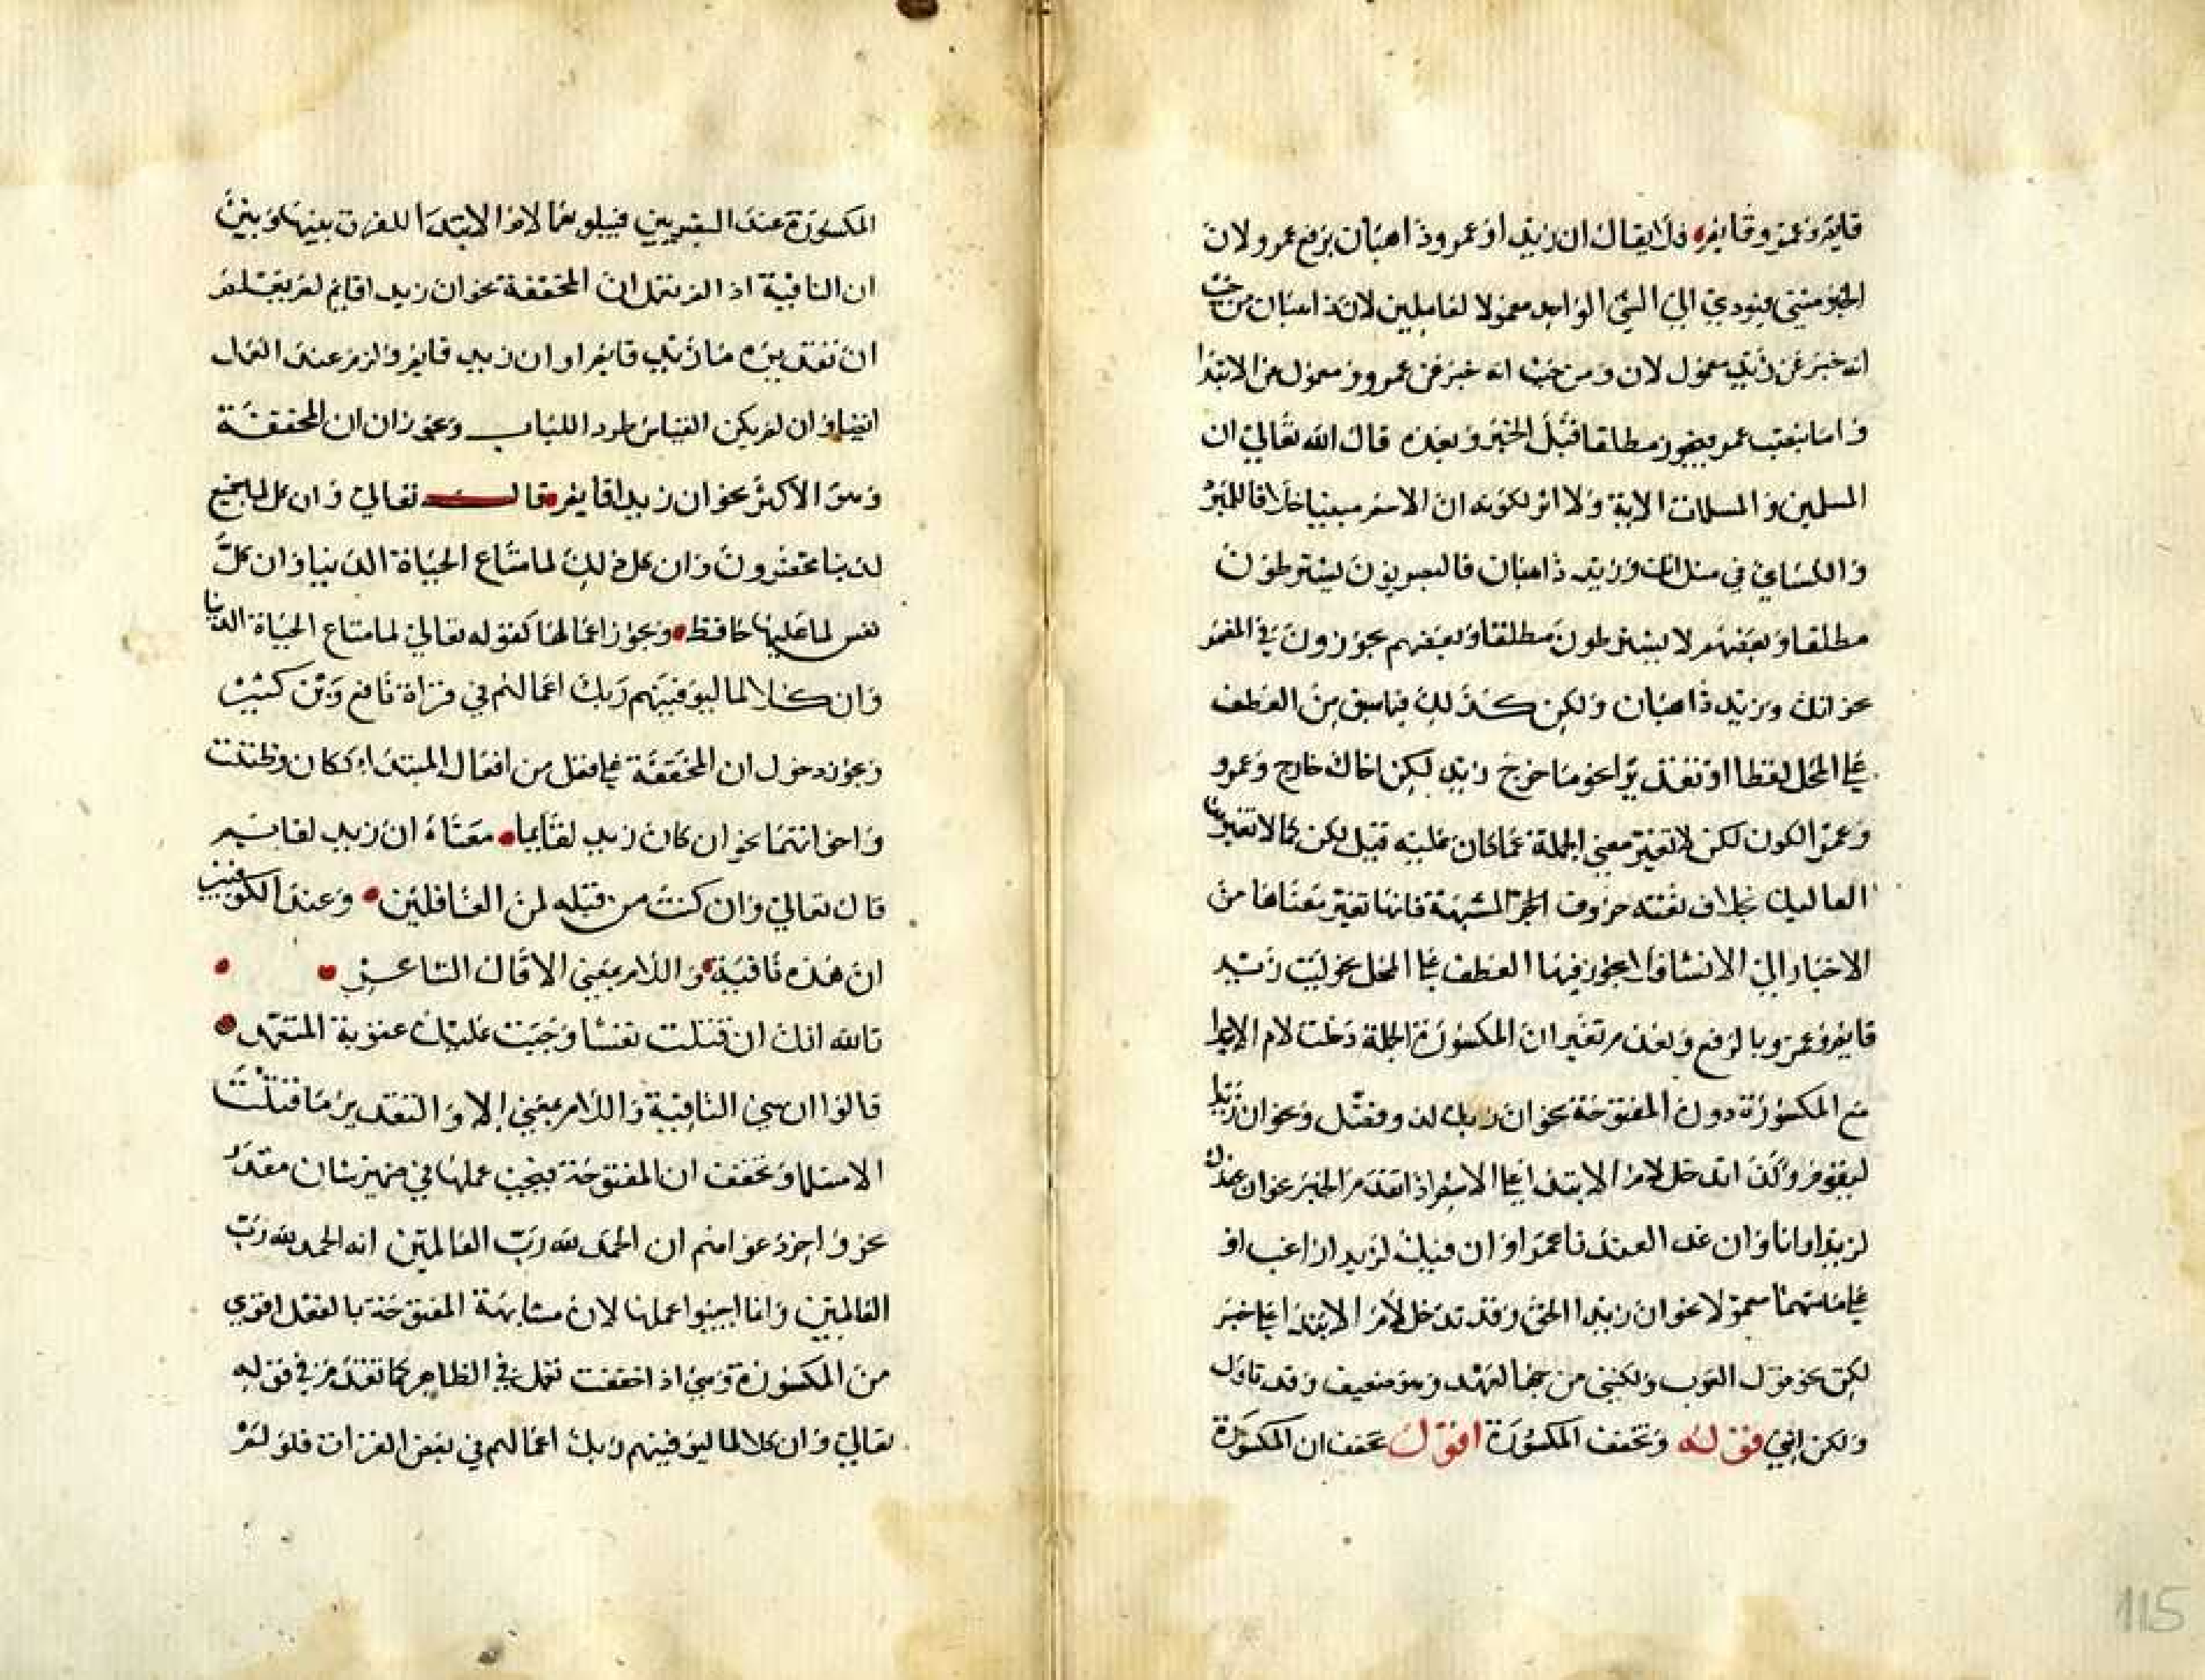 قايم وعمرو قايم فلا يقال ان زيدا وعمرو ذاهبان برفع عمرو لان
الخبر مثنى فيودي الي الشي الواحد معمولا لعاملين لان ذاهبان من حيث
انه خبر عن زيد معمول لان ومن حيث انه خبر عن عمرو معمول من الابتدا
واما بنصب عمر فيجوز مطلقا قبل الخبر وبعده قال الله تعالي ان
المسلمين والمسلمات الاية ولا اثر لكونه ان الاسم مبنيا خلافا للمبرد
والكساي في مثل انك وزيد ذاهبان فالبصريون يشترطون
مطلقا وبعضهم لا يشترطون مطلقا وبعضهم يجوزون في المضمر
نحو انك وزيد ذاهبان ولكن كذلك فيما سبق من العطف
علي المحل لفظا او تقديرا نحو ما خرج زيد لكن اخاك خارج وعمرو
وعمرو الكون لكن لا تغير معني الجملة عما كان عليه قبل لكن كما لا تغير
بخلاف بقية حروف الجر المشبهة فانها تغير معناها من
الاخبار الي الانشا ولا يجوز فيها العطف علي المحل نحو ليت زيد
قايم وعمرو بالرفع ولعدم تغير ان المكسورة الجملة دخلت لام الابتدا
مع المكسورة دون المفتوحة نحو ان ربك لذو فضل ونحو ان زيدا
ليقوم وكذا تدخل لام الابتدا علي الاسم اذا تقدم الخبر نحو ان عندك
لزيدا وان فيك لزيد الراغب او
علي معمولا نحو ان زيدا وقد تدخل لام الابتدا علي خبر
لكن نحو قول العرب ولكنني من حبها لعميد وهو ضعيف وقد تاول
ولكن انني قوله وتخفف المكسورة اقول تخفف ان المكسورة
المكسورة عند البصريين فيلزمها لام الابتدا للفرق بينها وبين
ان النافية اذا لم تعمل ان المخففة نحو ان زيد لقايم لم يعلم
ان تقديره ما زيد قايم او ان زيد قايم ولزم عند العمل
ايضا وان لم يكن القياس طردا للباب وعجوزان ان المخففة
وهو الاكثر نحو ان زيد لقايم قال تعالي وان كل لما جميع
لدينا محضرون وان كل ذلك لما متاع الحياة الدنيا وان كل
نفس لما عليها حافظ ويجوز اعمالها كقوله تعالي لما متاع الحياة الدنيا
وان كلا لما ليوفينهم ربك اعمالهم في قراة نافع وبن كثير
ويجوز دخول ان المخففة علي فعل من افعال المبتداء ككان وظننت
واخواتهما نحو ان كان زيد لقايما معناه ان زيد لقايم
قال تعالي وان كنت من قبله لمن الغافلين وعند الكوفيين
ان هذه نافية واللام بمعني الا قال الشاعر
تالله انك ان قتلت نفسا وجبت عليك عقوبة المتعمد
قالوا ان هي النافية واللام بمعني الا والتقدير ما قتلت
الا مسلما وتخفف ان المفتوحة فيجب عملها في ضمير شان مقدر
نحو واخر دعواهم ان الحمد لله رب العالمين انه الحمد لله رب
العالمين وانما اجبوا عملها لان مشابهة المفتوحة بالفعل اقوي
من المكسورة وهي اذا خففت تعمل في الظاهر كما تقدم في قوله
تعالي وان كلا لما ليوفينهم ربك اعمالهم في بعض القرات فلو لم
115